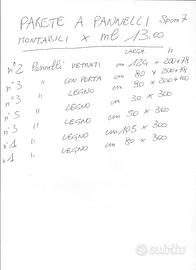 PARETE A PANNELLI Spom 7
MONTABILI x ml 13.00
LARGH. h
n°2 Pannelli VETRATI cm 124 x 200+78
n°3 " CON PORTA cm 80 x 200+78
n°3 " LEGNO cm 90 x 300
n°3 " LEGNO cm 30 x 300
n°5 " LEGNO cm 50 x 300
n°1 " LEGNO cm 105 x 300
n°1 " LEGNO cm 80 x 300
subito